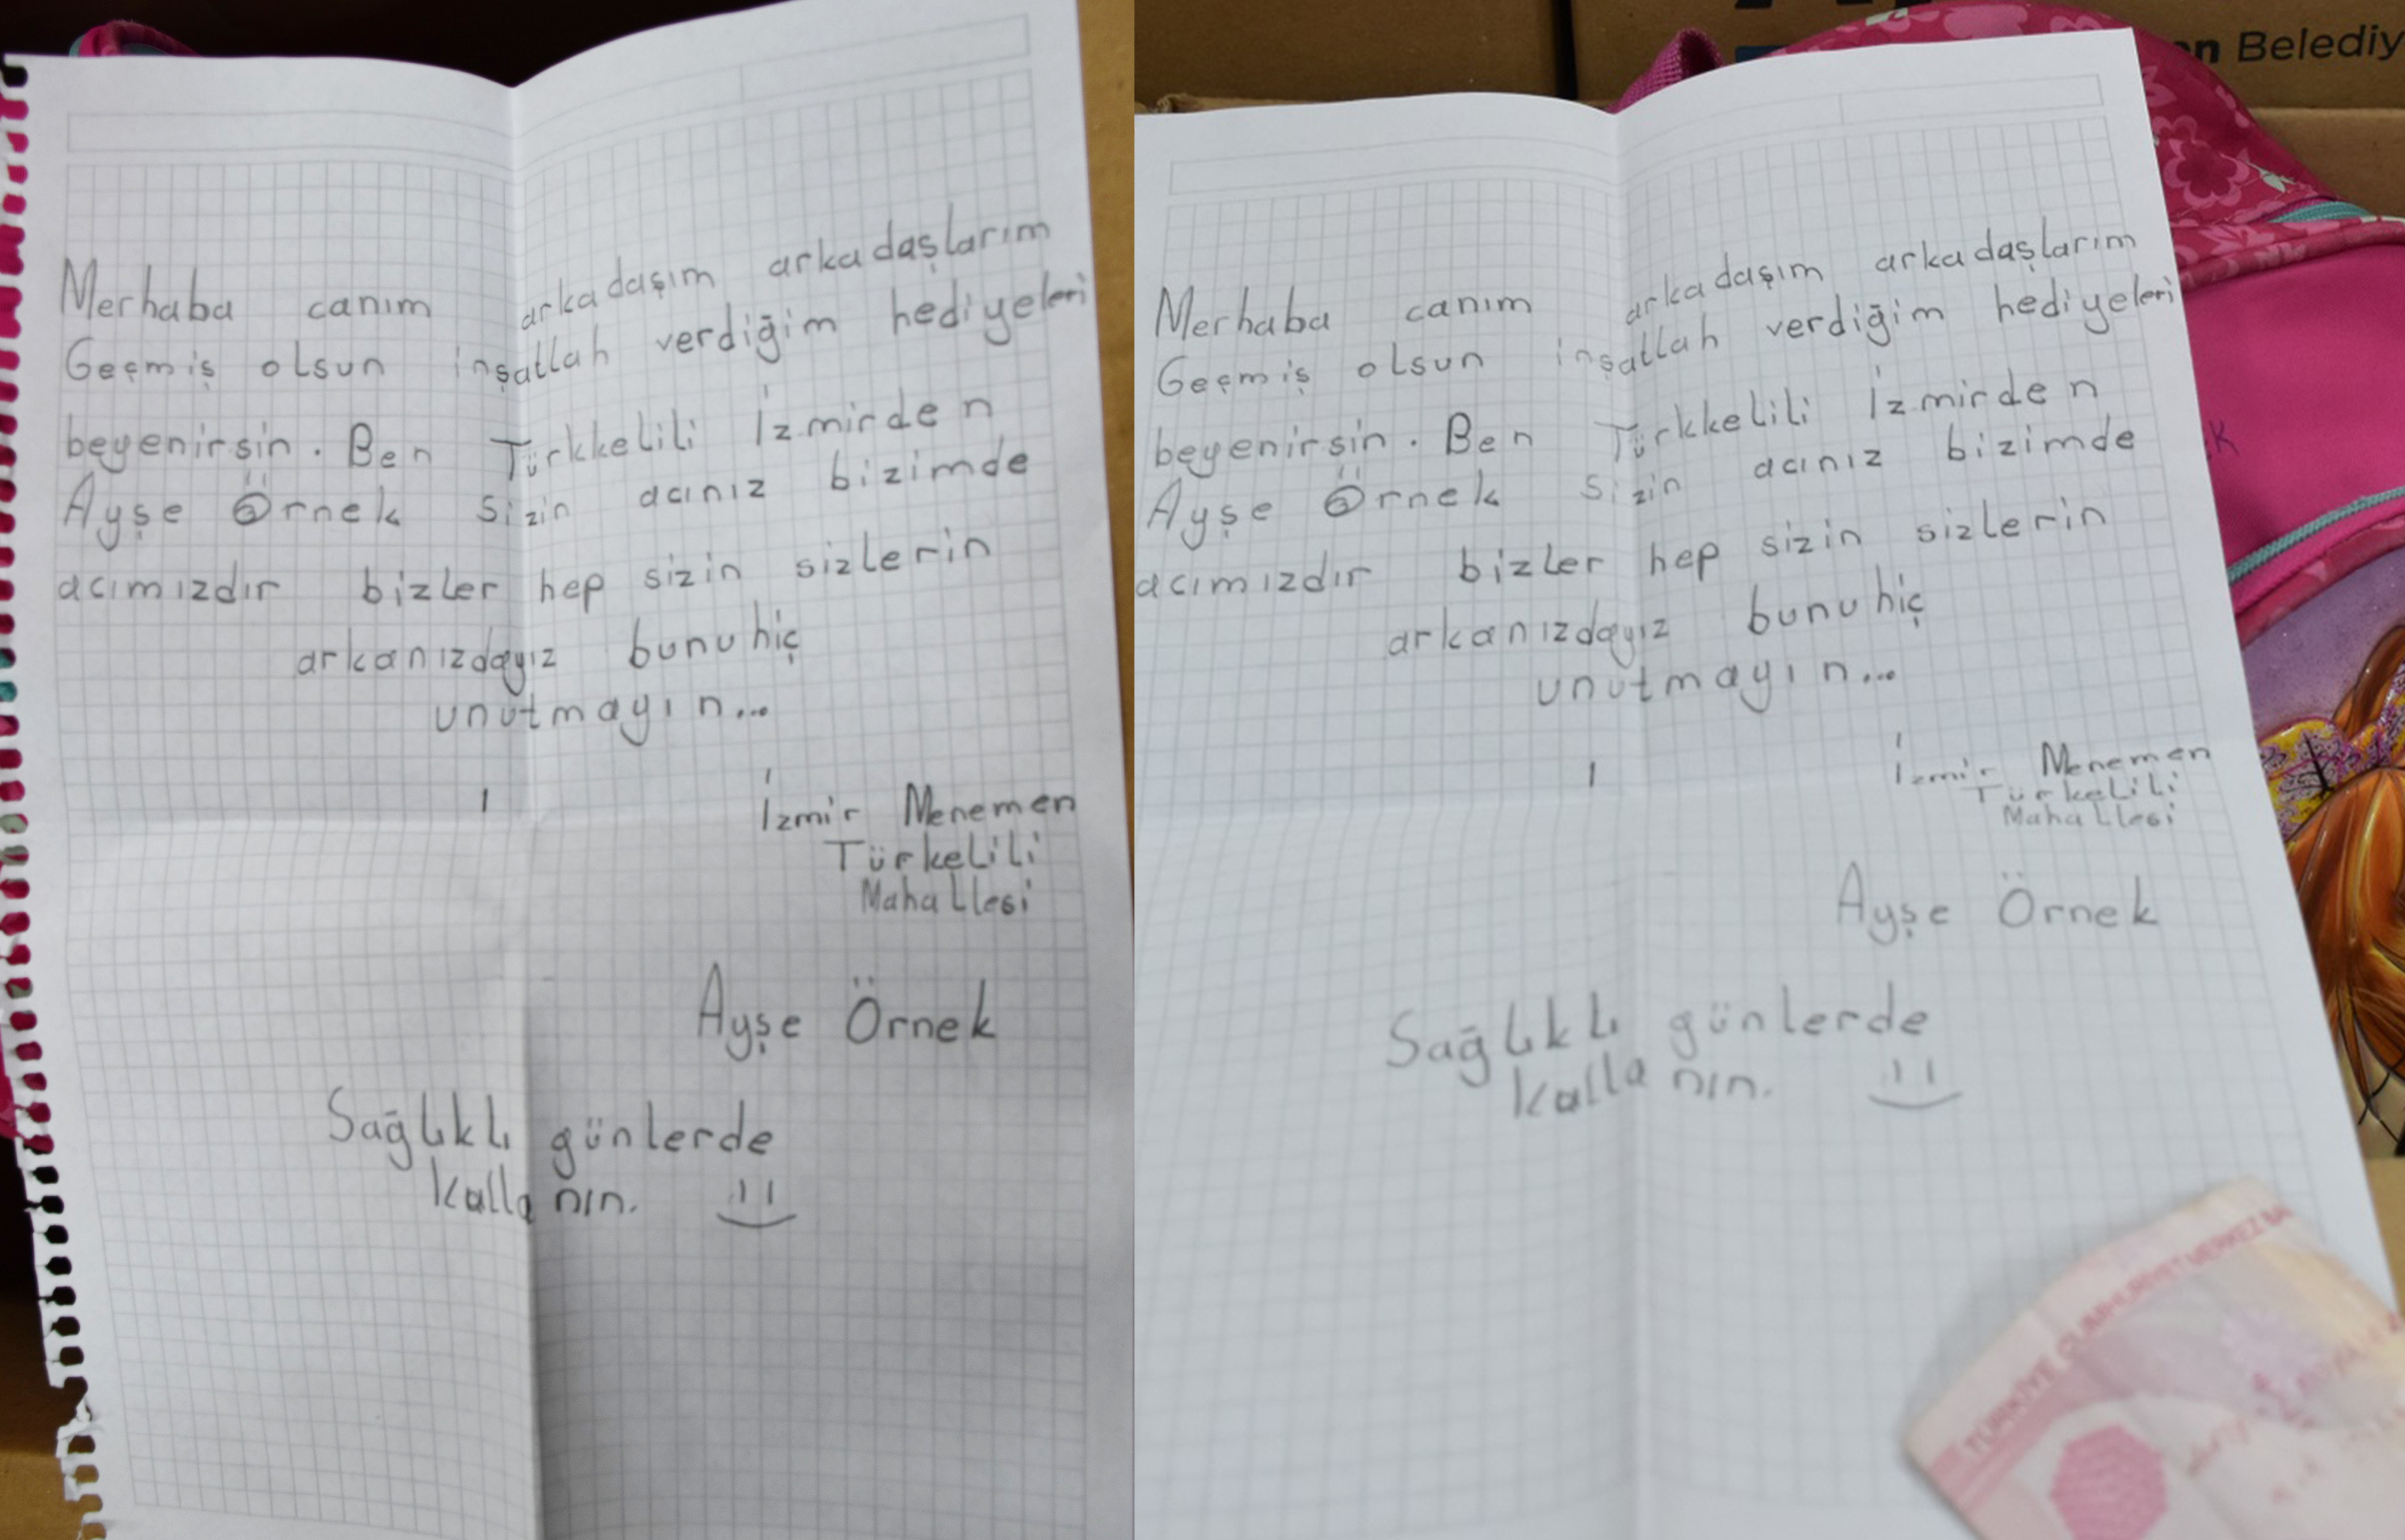 Merhaba canım arkadaşım arkadaşlarım
Geçmiş olsun inşatlah verdiğim hediyeleri
beyenirsin. Ben Türkkelili İzmirden
Ayşe Örnek sizin acınız bizimde
acımızdır bizler hep sizin sizlerin
arkanızdayız bunu hiç
unutmayın...
İzmir Menemen
Türkelili
Mahallesi
Ayşe Örnek
Sağlıklı günlerde
kullanın.
n Belediy
Merhaba canım arkadaşım arkadaşlarım
Geçmiş olsun inşatlah verdiğim hediyeleri
beyenirsin. Ben Türkkelili İzmirden
Ayşe Örnek sizin acınız bizimde
acımızdır bizler hep sizin sizlerin
arkanızdayız bunu hiç
unutmayın...
İzmir Menemen
Türkelili
Mahallesi
Ayşe Örnek
Sağlıklı günlerde
kullanın.
TÜRKİYE CUMHURİYET MERKEZ BA